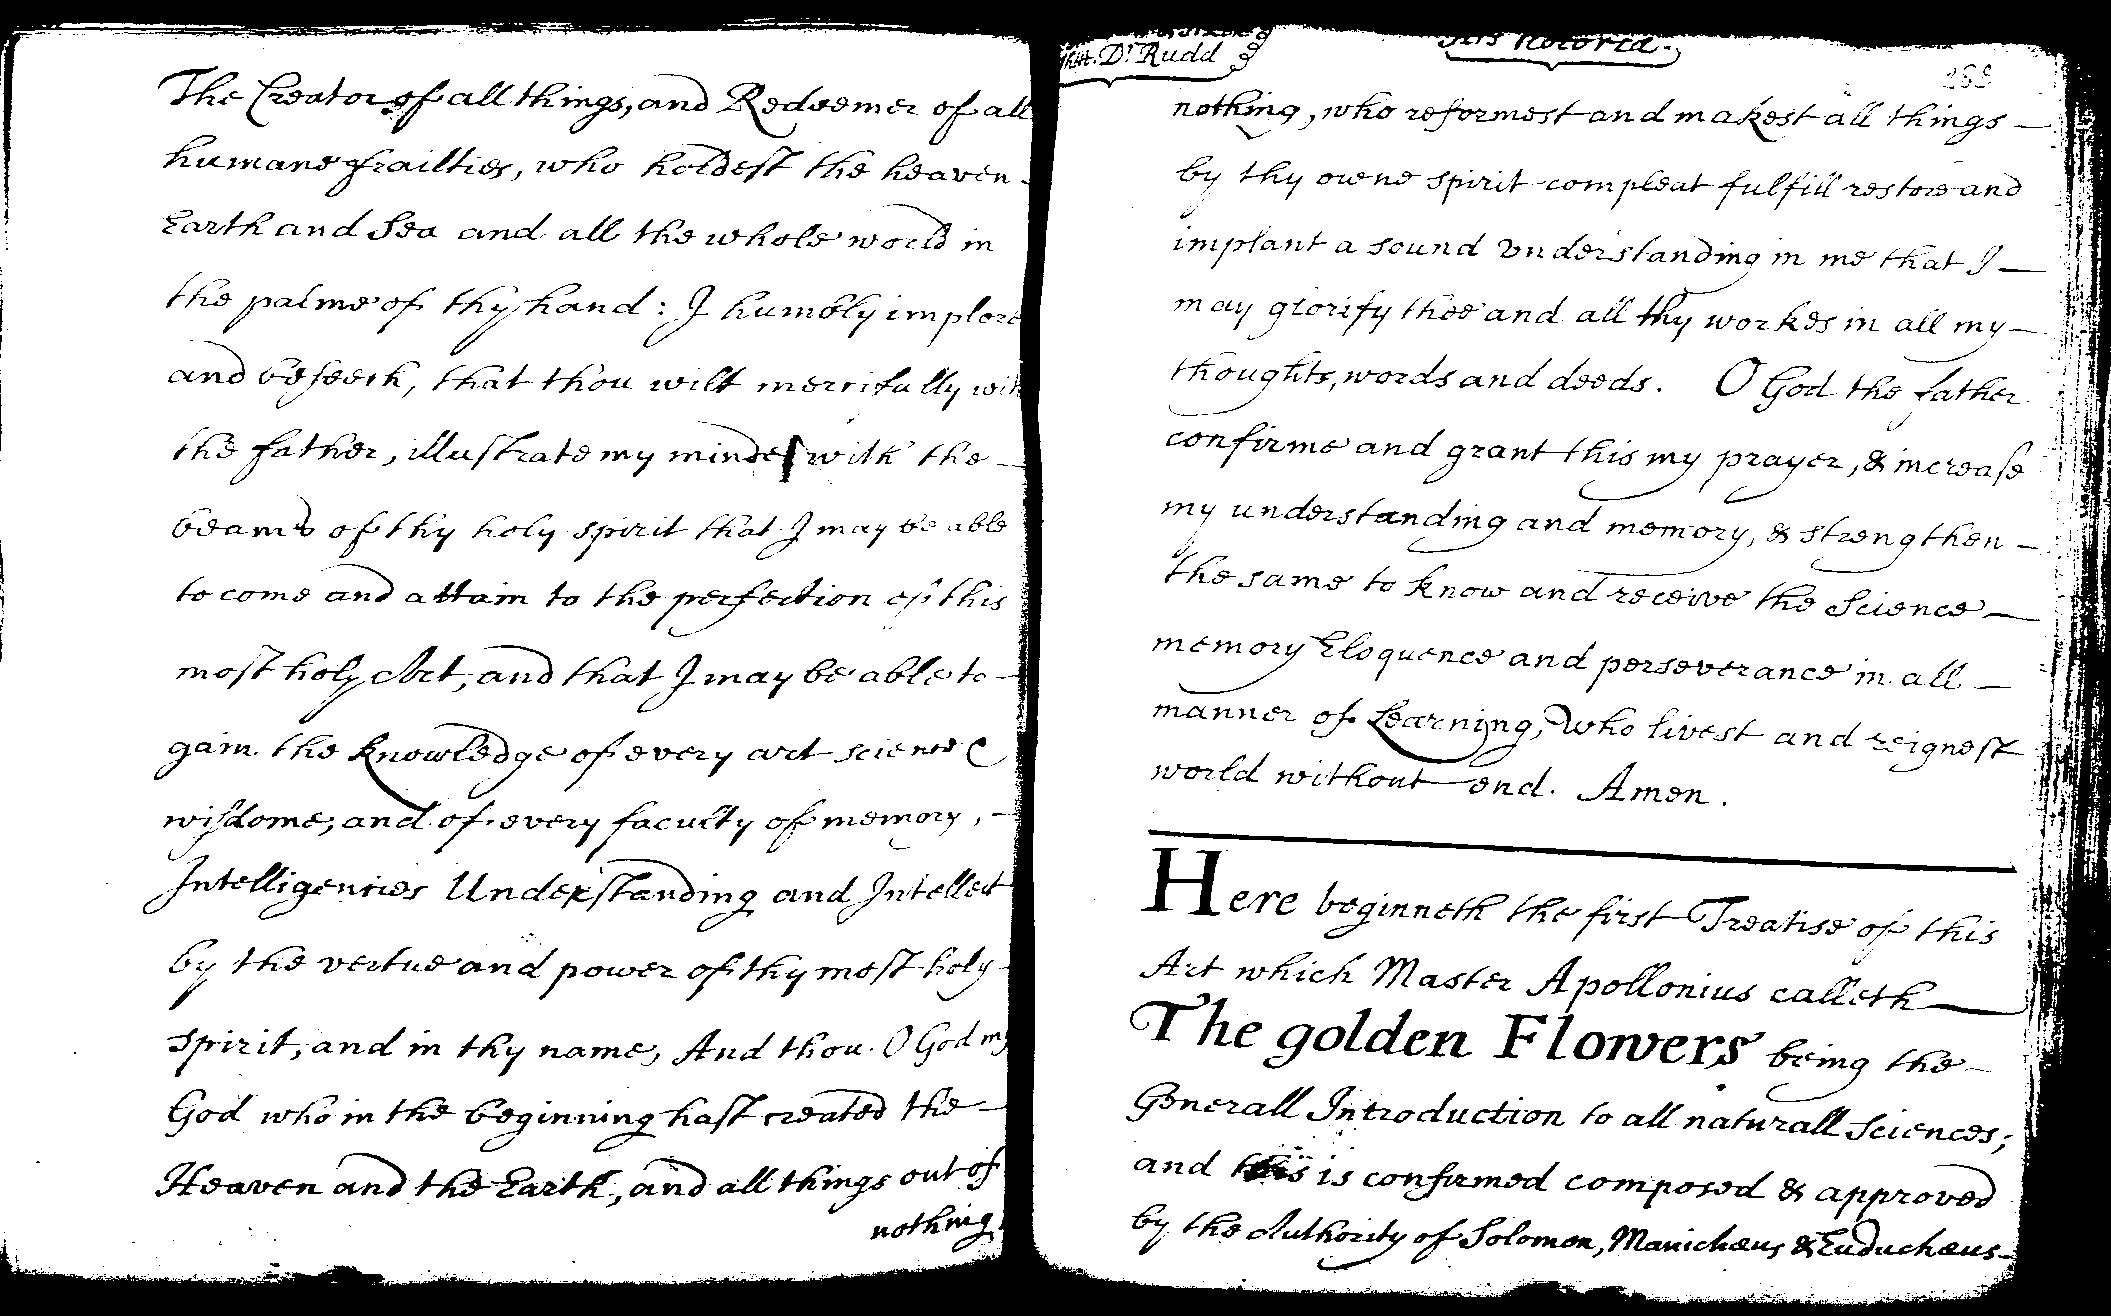 The Creator of all things, and Redeemer of all
humane frailties, who holdest the heaven
Earth and Sea and all the whole world in
the palme of thy hand: I humbly implore
and beseech, that thou wilt mercifully with
the father, illustrate my minde with the
beames of thy holy spirit that I may be able
to come and attain to the perfection of this
most holy Art, and that I may be able to
gain the knowledge of every art science &
wisdome, and of every faculty of memory,
Intelligencies Understanding and Intellect
by the vertue and power of thy most holy
spirit, and in thy name, And thou O God my
God who in the beginning hast created the
Heaven and the Earth, and all things out of
nothing
Dr Rudd
Ars Notoria.
nothing, who reformest and makest all things
by thy owne spirit compleat fulfill restore and
implant a sound understanding in me that I
may glorify thee and all thy workes in all my
thoughts, words and deeds. O God the father
confirme and grant this my prayer, & increase
my understanding and memory, & strengthen
the same to know and receive the Science
memory Eloquence and perseverance in all
manner of Learning, who livest and reignest
world without end. Amen.
Here beginneth the first Treatise of this
Art which Master Apollonius calleth
The golden Flowers being the
Generall Introduction to all naturall Sciences;
and this is confirmed composed & approved
by the Authority of Solomon, Manichæus & Euduchæus